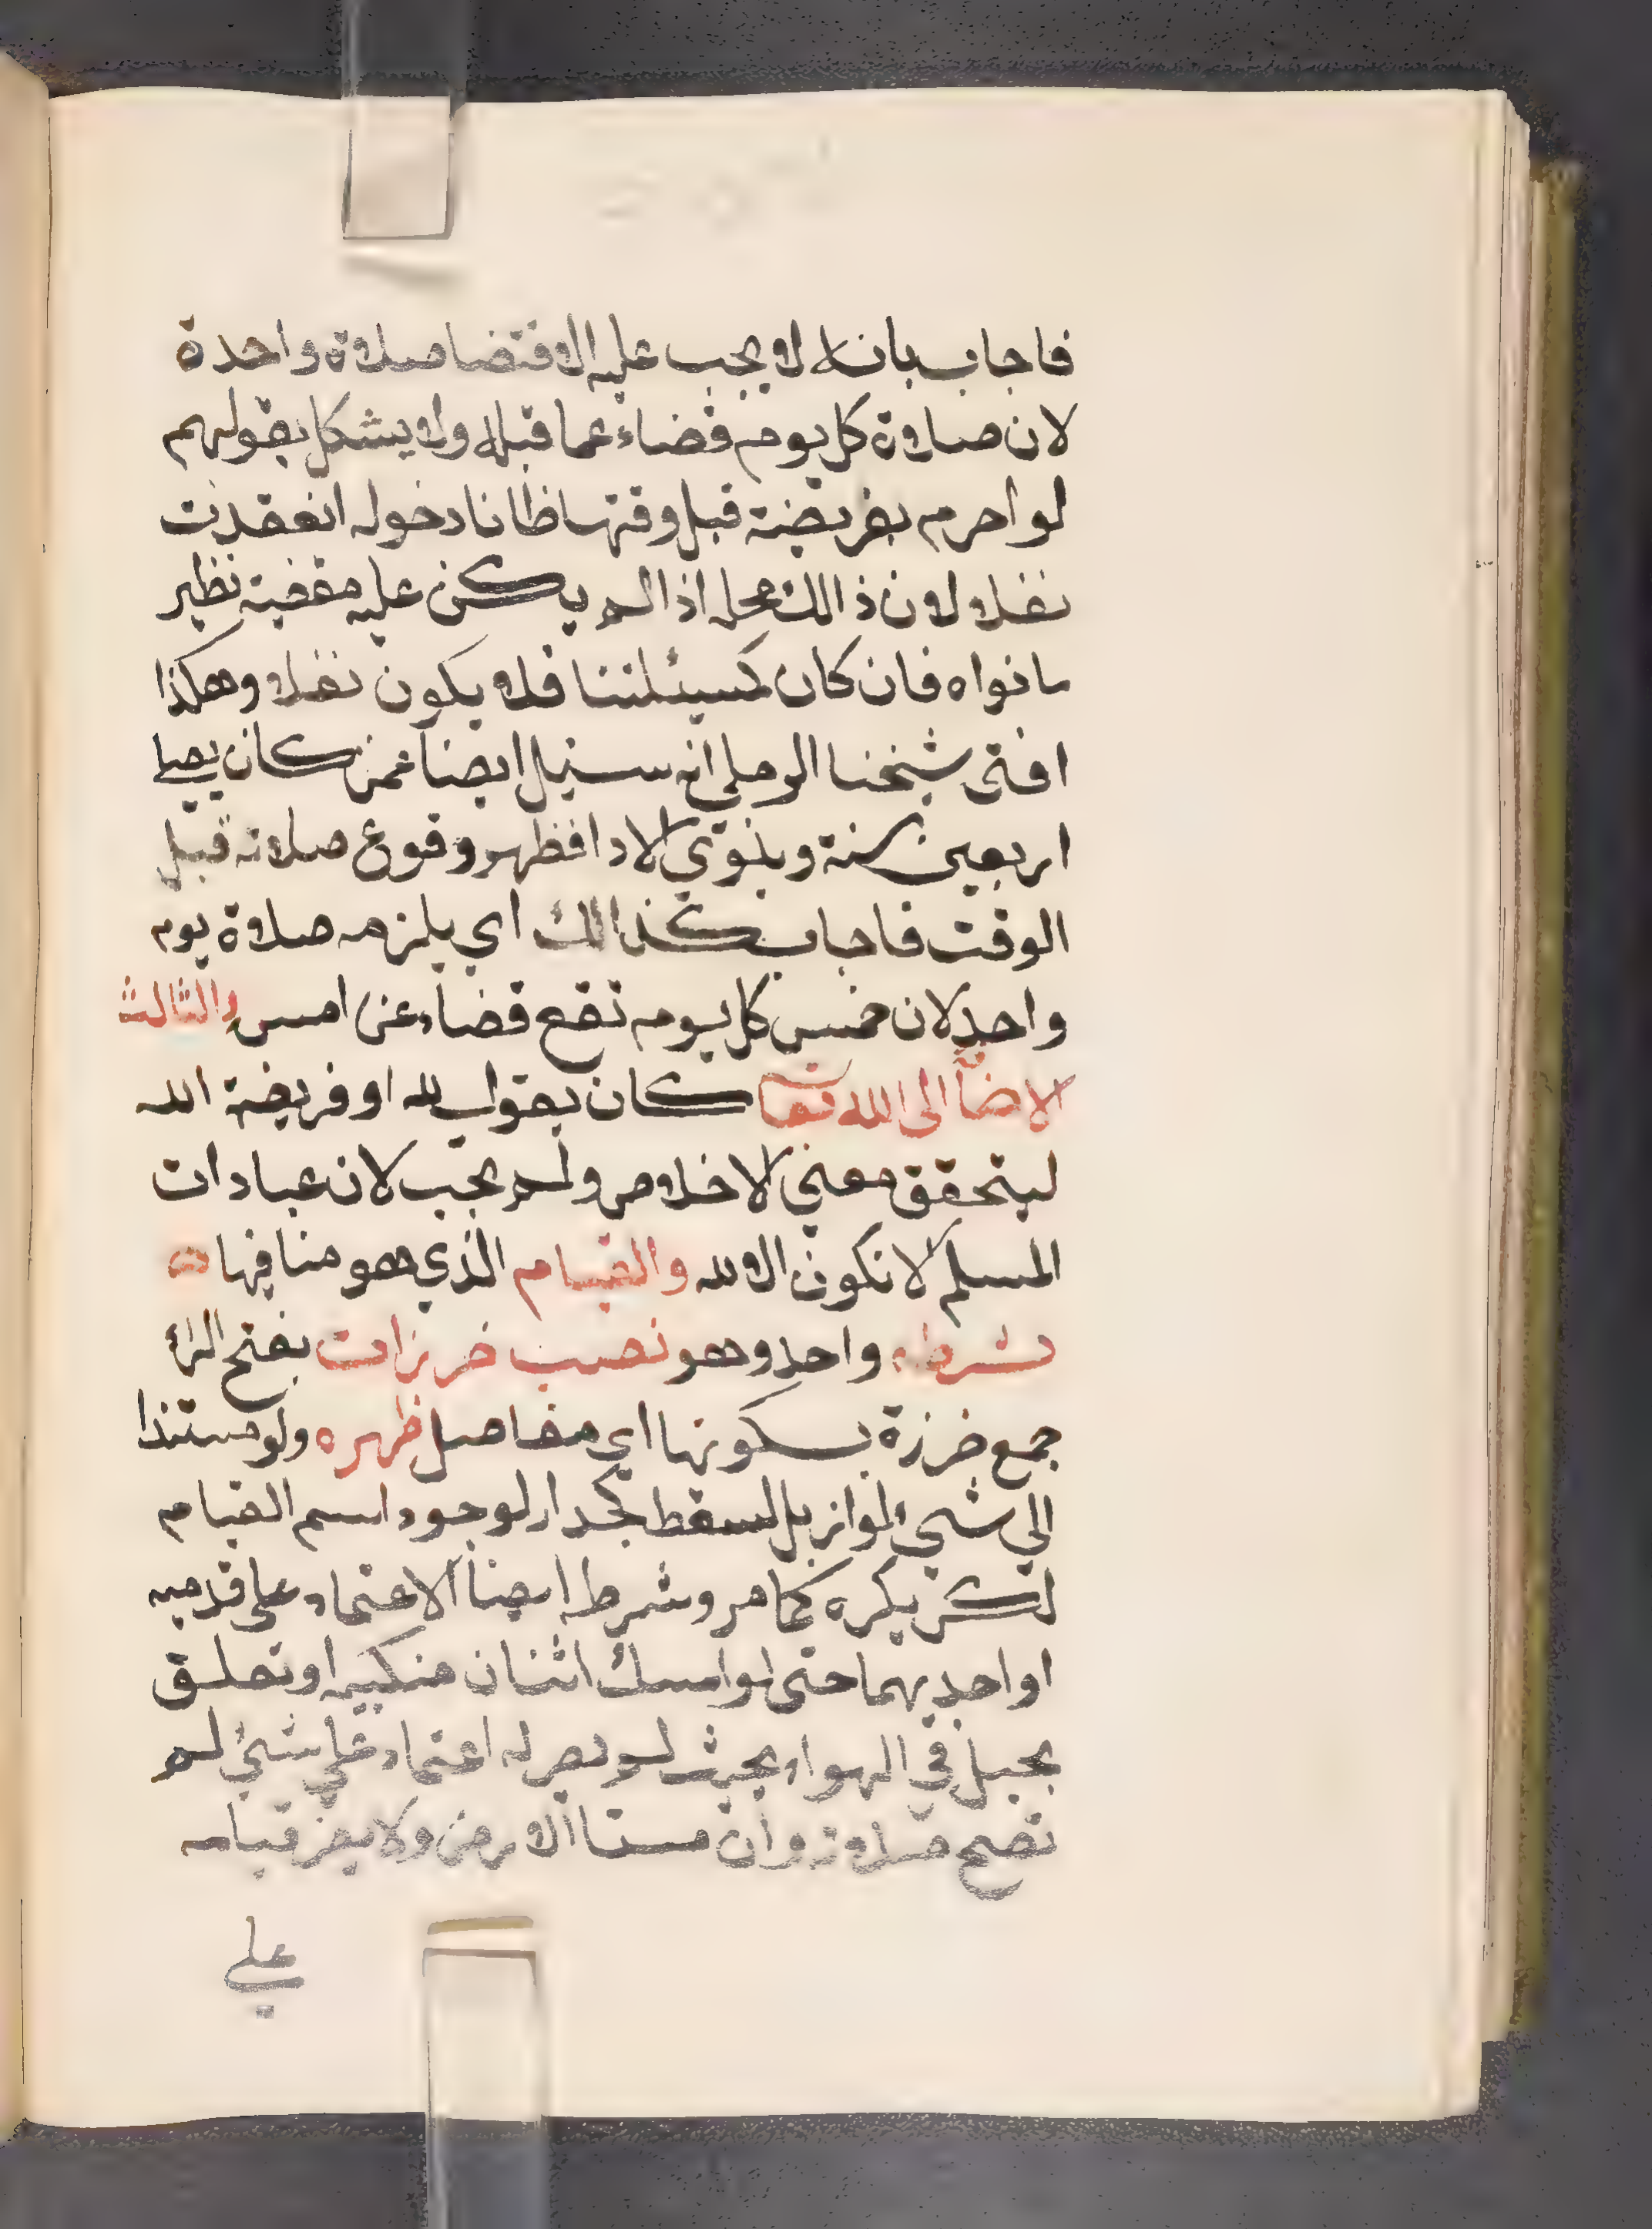 فاجاب بانه لا يجب عليه الا قضا صلاة واحدة
لان صلاة كل يوم قضاء عما قبله ولا يشكل بقولهم
لو احرم بفريضة قبل وقتها ظانا دخوله انعقدت
نفلا لان ذالك محله اذا لم يكن عليه مقضية نظير
مانواه فان كان كمسئلتنا فلا يكون نفلا وهكذا
افتى شيخنا الرملي انه سئيل ايضا عمن كان يصلي
اربعين سنة وينوي الادا فظهر وقوع صلاته قبل
الوقت فاجاب كذالك اي يلزمه صلاة يوم
واحد لان خمس كل يوم تقع قضاء عن امس والثالث
الاضآ الى الله تعا كان يقول لله او فريضة الله
ليتحقق معني الاخلاص ولم يجب لان عبادات
المسلم لا تكون الا لله والقيام الذي هو منافيها
شرطه واحد وهو نصب خرزات بفتح الرا
جمع خرزة بسكونها اي مفاصل ظهره ولو مستندا
الي شيئ لو ازيل لسقط كجدار لوجود اسم القيام
لكن يكره كما مر وشرطه ايضا الاعتماد على قدميه
او احديهما حتى لو امسك اثنان منكبيه او تعلق
بحبل في الهواء بحيث لم يصر له اعتماد علي شيئ لم
تصح صلاته وان مستا الارض ولا يضر قيامه
علي